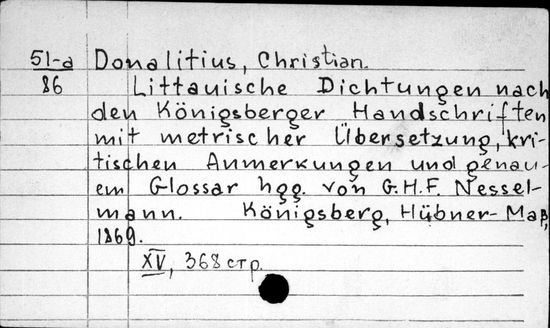 51-a Donalitius, Christian.
86 Littauische Dichtungen nach
den Königsberger Handschriften
mit metrischer Übersetzung, kri-
tischen Anmerkungen und genau-
em Glossar hgg. von G.H.F. Nessel-
mann. Königsberg, Hübner-Maß,
1869.
XV, 368 стр.